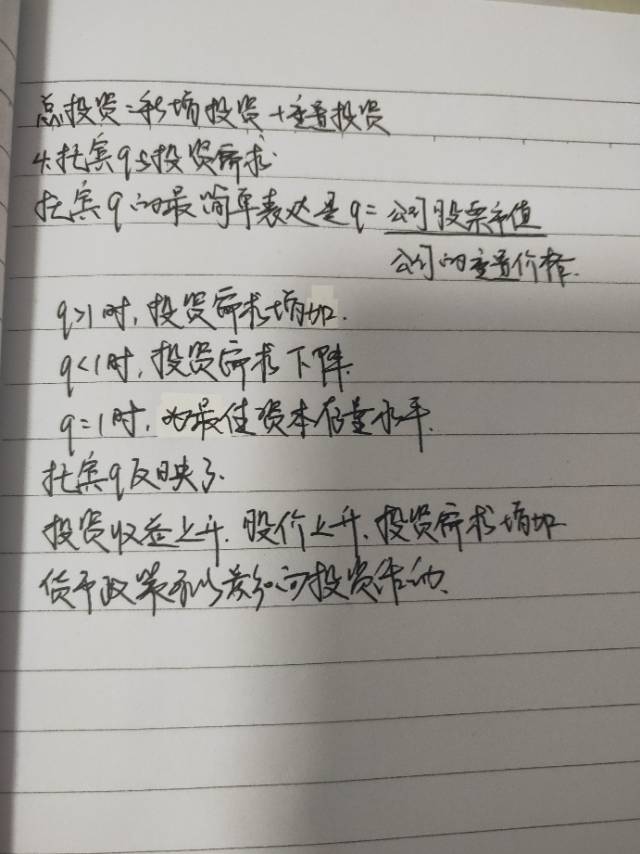 总投资=净投资+重置投资
4.托宾q与投资需求
托宾q的最简单表达是q=公司股票市值
公司的重置价格.
q>1时,投资需求增加.
q<1时,投资需求下降.
q=1时,为最佳资本存量水平.
托宾q反映了.
投资收益上升.股价上升.投资需求增加
货币政策可以影响投资活动.